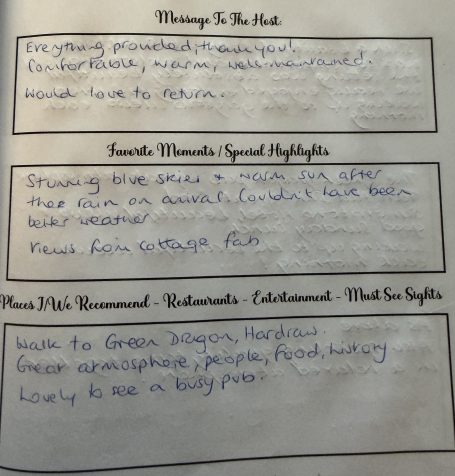 Message To The Host:
Everything provided, thank you!
Comfortable, warm, well maintained.
Would love to return.
Favorite Moments / Special Highlights
Stunning blue skies + warm sun after
the rain on arrival. Couldn't have been
better weather
Views from cottage fab
Places I/We Recommend - Restaurants - Entertainment - Must See Sights
Walk to Green Dragon, Hardraw.
Great atmosphere, people, food, history
Lovely to see a busy pub.